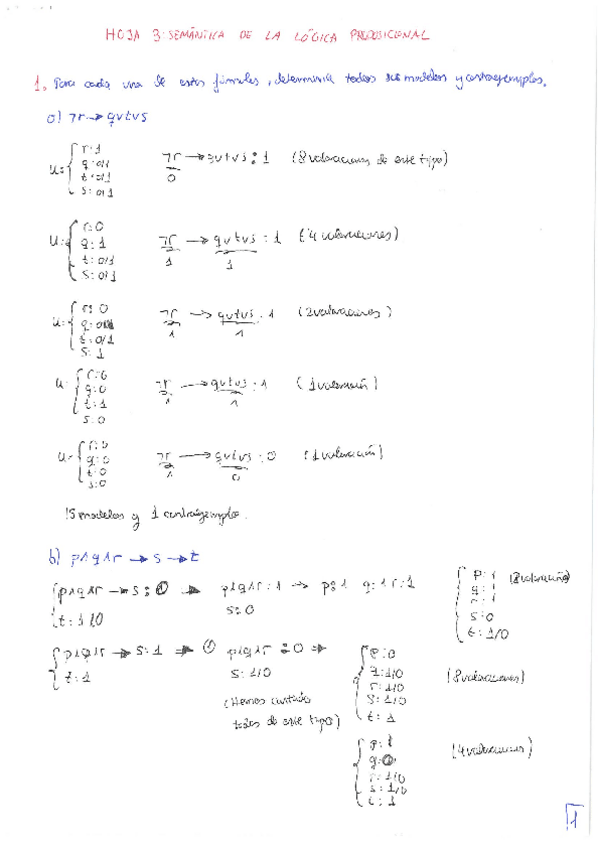 HOJA 3: SEMÁNTICA DE LA LÓGICA PROPOSICIONAL
1. Para cada una de estas fórmulas, determina todos sus modelos y contraejemplos.
a) ¬r → q∨t∨s
u= { r:1 q:0/1 t:0/1 s:0/1
¬r → q∨t∨s : 1 (8 valoraciones de este tipo)
0
u= { r:0 q:1 t:0/1 s:0/1
¬r → q∨t∨s : 1 (4 valoraciones)
1 1
u= { r:0 t:0/1 s:1
¬r → q∨t∨s : 1 (2 valoraciones)
1 1
u= { r:0 q:0 t:1 s:0
¬r → q∨t∨s : 1 (1 valoración)
1 1
u= { r:0 q:0 t:0 s:0
¬r → q∨t∨s : 0 (1 valoración)
1 0
15 modelos y 1 contraejemplo.
b) p∧q∧r → s → t
{ p∧q∧r → s : 0 → p∧q∧r : 1 → p:1 q:1 r:1
t: 1/0 s: 0
{ p:1 q:1 r:1 s:0 t:1/0
{ p∧q∧r → s : 1 ⇒ ① p∧q∧r = 0 ⇒
t: 1 s: 1/0
(Hemos contado todos de este tipo)
{ p:0 q:1/0 r:1/0 s:1/0 t:1 (8 valoraciones)
{ p:1 q:0 r:1/0 s:1/0 t:1 (4 valoraciones)
1